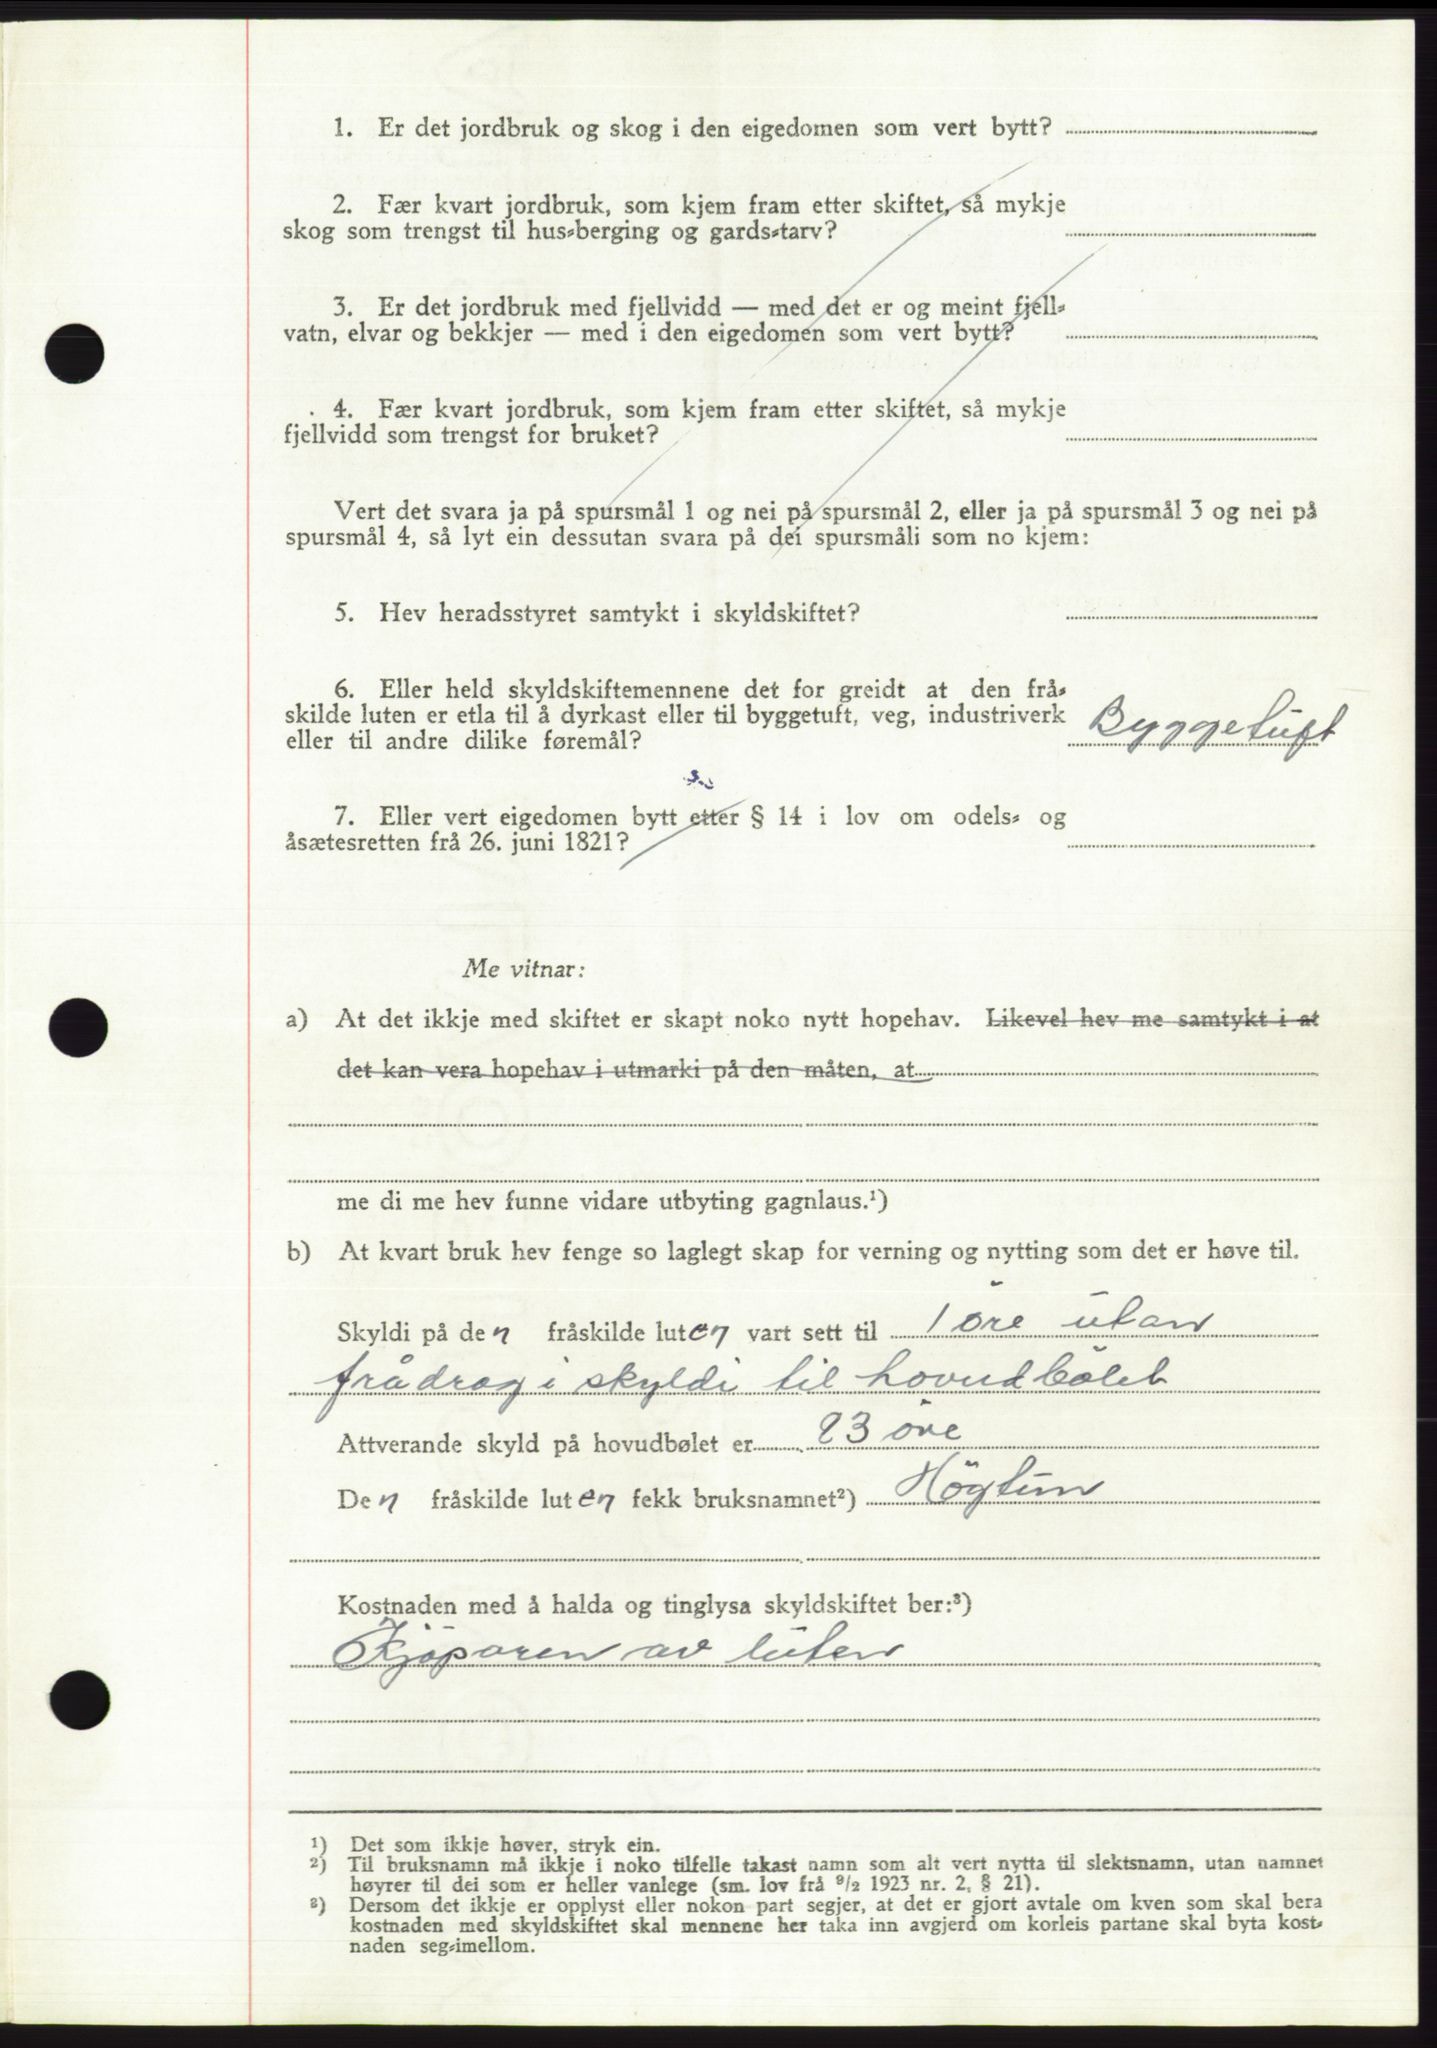 1. Er det jordbruk og skog i den eigedomen som vert bytt?
2. Fær kvart jordbruk, som kjem fram etter skiftet, så mykje
skog som trengst til hus-berging og gards-tarv?
3. Er det jordbruk med fjellvidd — med det er og meint fjell-
vatn, elvar og bekkjer — med i den eigedomen som vert bytt?
4. Fær kvart jordbruk, som kjem fram etter skiftet, så mykje
fjellvidd som trengst for bruket?
Vert det svara ja på spursmål 1 og nei på spursmål 2, eller ja på spursmål 3 og nei på
spursmål 4, så lyt ein dessutan svara på dei spursmåli som no kjem:
5. Hev heradsstyret samtykt i skyldskiftet?
6. Eller held skyldskiftemennene det for greidt at den frå-
skilde luten er etla til å dyrkast eller til byggetuft, veg, industriverk
eller til andre dilike føremål? Byggetuft
7. Eller vert eigedomen bytt etter § 14 i lov om odels- og
åsætesretten frå 26. juni 1821?
Me vitnar:
a) At det ikkje med skiftet er skapt noko nytt hopehav. Likevel hev me samtykt i at
det kan vera hopehav i utmarki på den måten, at
me di me hev funne vidare utbyting gagnlaus.¹)
b) At kvart bruk hev fenge so laglegt skap for verning og nytting som det er høve til.
Skyldi på den fråskilde luten vart sett til 1 öre utan
frådrag i skyldi til hovudbölet
Attverande skyld på hovudbølet er 23 öre
Den fråskilde luten fekk bruksnamnet²) Högtun
Kostnaden med å halda og tinglysa skyldskiftet ber:³)
Kjöparen av luten
¹) Det som ikkje høver, stryk ein.
²) Til bruksnamn må ikkje i noko tilfelle takast namn som alt vert nytta til slektsnamn, utan namnet
høyrer til dei som er heller vanlege (sm. lov frå ⁹/₂ 1923 nr. 2, § 21).
³) Dersom det ikkje er opplyst eller nokon part segjer, at det er gjort avtale om kven som skal bera
kostnaden med skyldskiftet skal mennene her taka inn avgjerd om korleis partane skal byta kost-
naden seg-imellom.